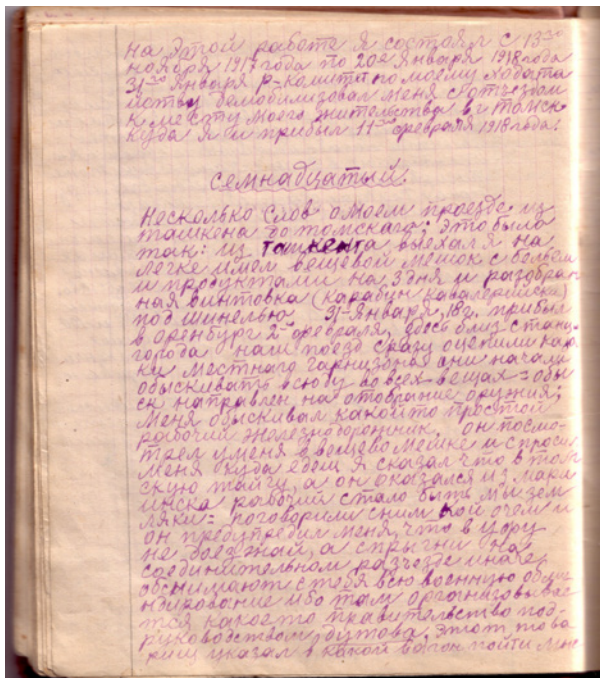 на этой работе я состоял с 13го
ноября 1917 года по 20е января 1918 года
31го января р-комитет по моему ходата
йству демобилизовал меня с отъездом
к месту моего жительства в г томск
куда я и прибыл 11го февраля 1918 года.
семнадцатый.
Несколько слов о моем проезде из
ташкена до томскаго: это было
так: из ташкента выехал я на
легке имел вещевой мешок с бельем
и продуктами на 3 дня и разобран
ная винтовка (карабин кавалерийски)
под шинелью 31-января 18 г. прибыл
в оренбург 2го февраля, здесь близ станц
города наш поезд сразу оцепили
ки местнаго гарнизона они начали
обыскивать всюду во всех вещах = обы
ск направлен на отобрание оружия;
меня обыскивал какойто простой
рабочий железнодорожник, он посмо-
трел у меня в вещево мешке и спросил
меня куда едеш я сказал что в том
скую тайгу, а он оказался из мари
инска рабочий стало быть мы зем
ляки = поговорили с ним кой о чем и
он предупредил меня, что в уфу
не доезжай, а спрыгни на
соединительном разъезде иначе
обснимают с тебя всю военную
ндирование ибо там организовывае
тся какоето правительство под-
руководством дутова, этот това
рищ указал в какой вагон пойти мне